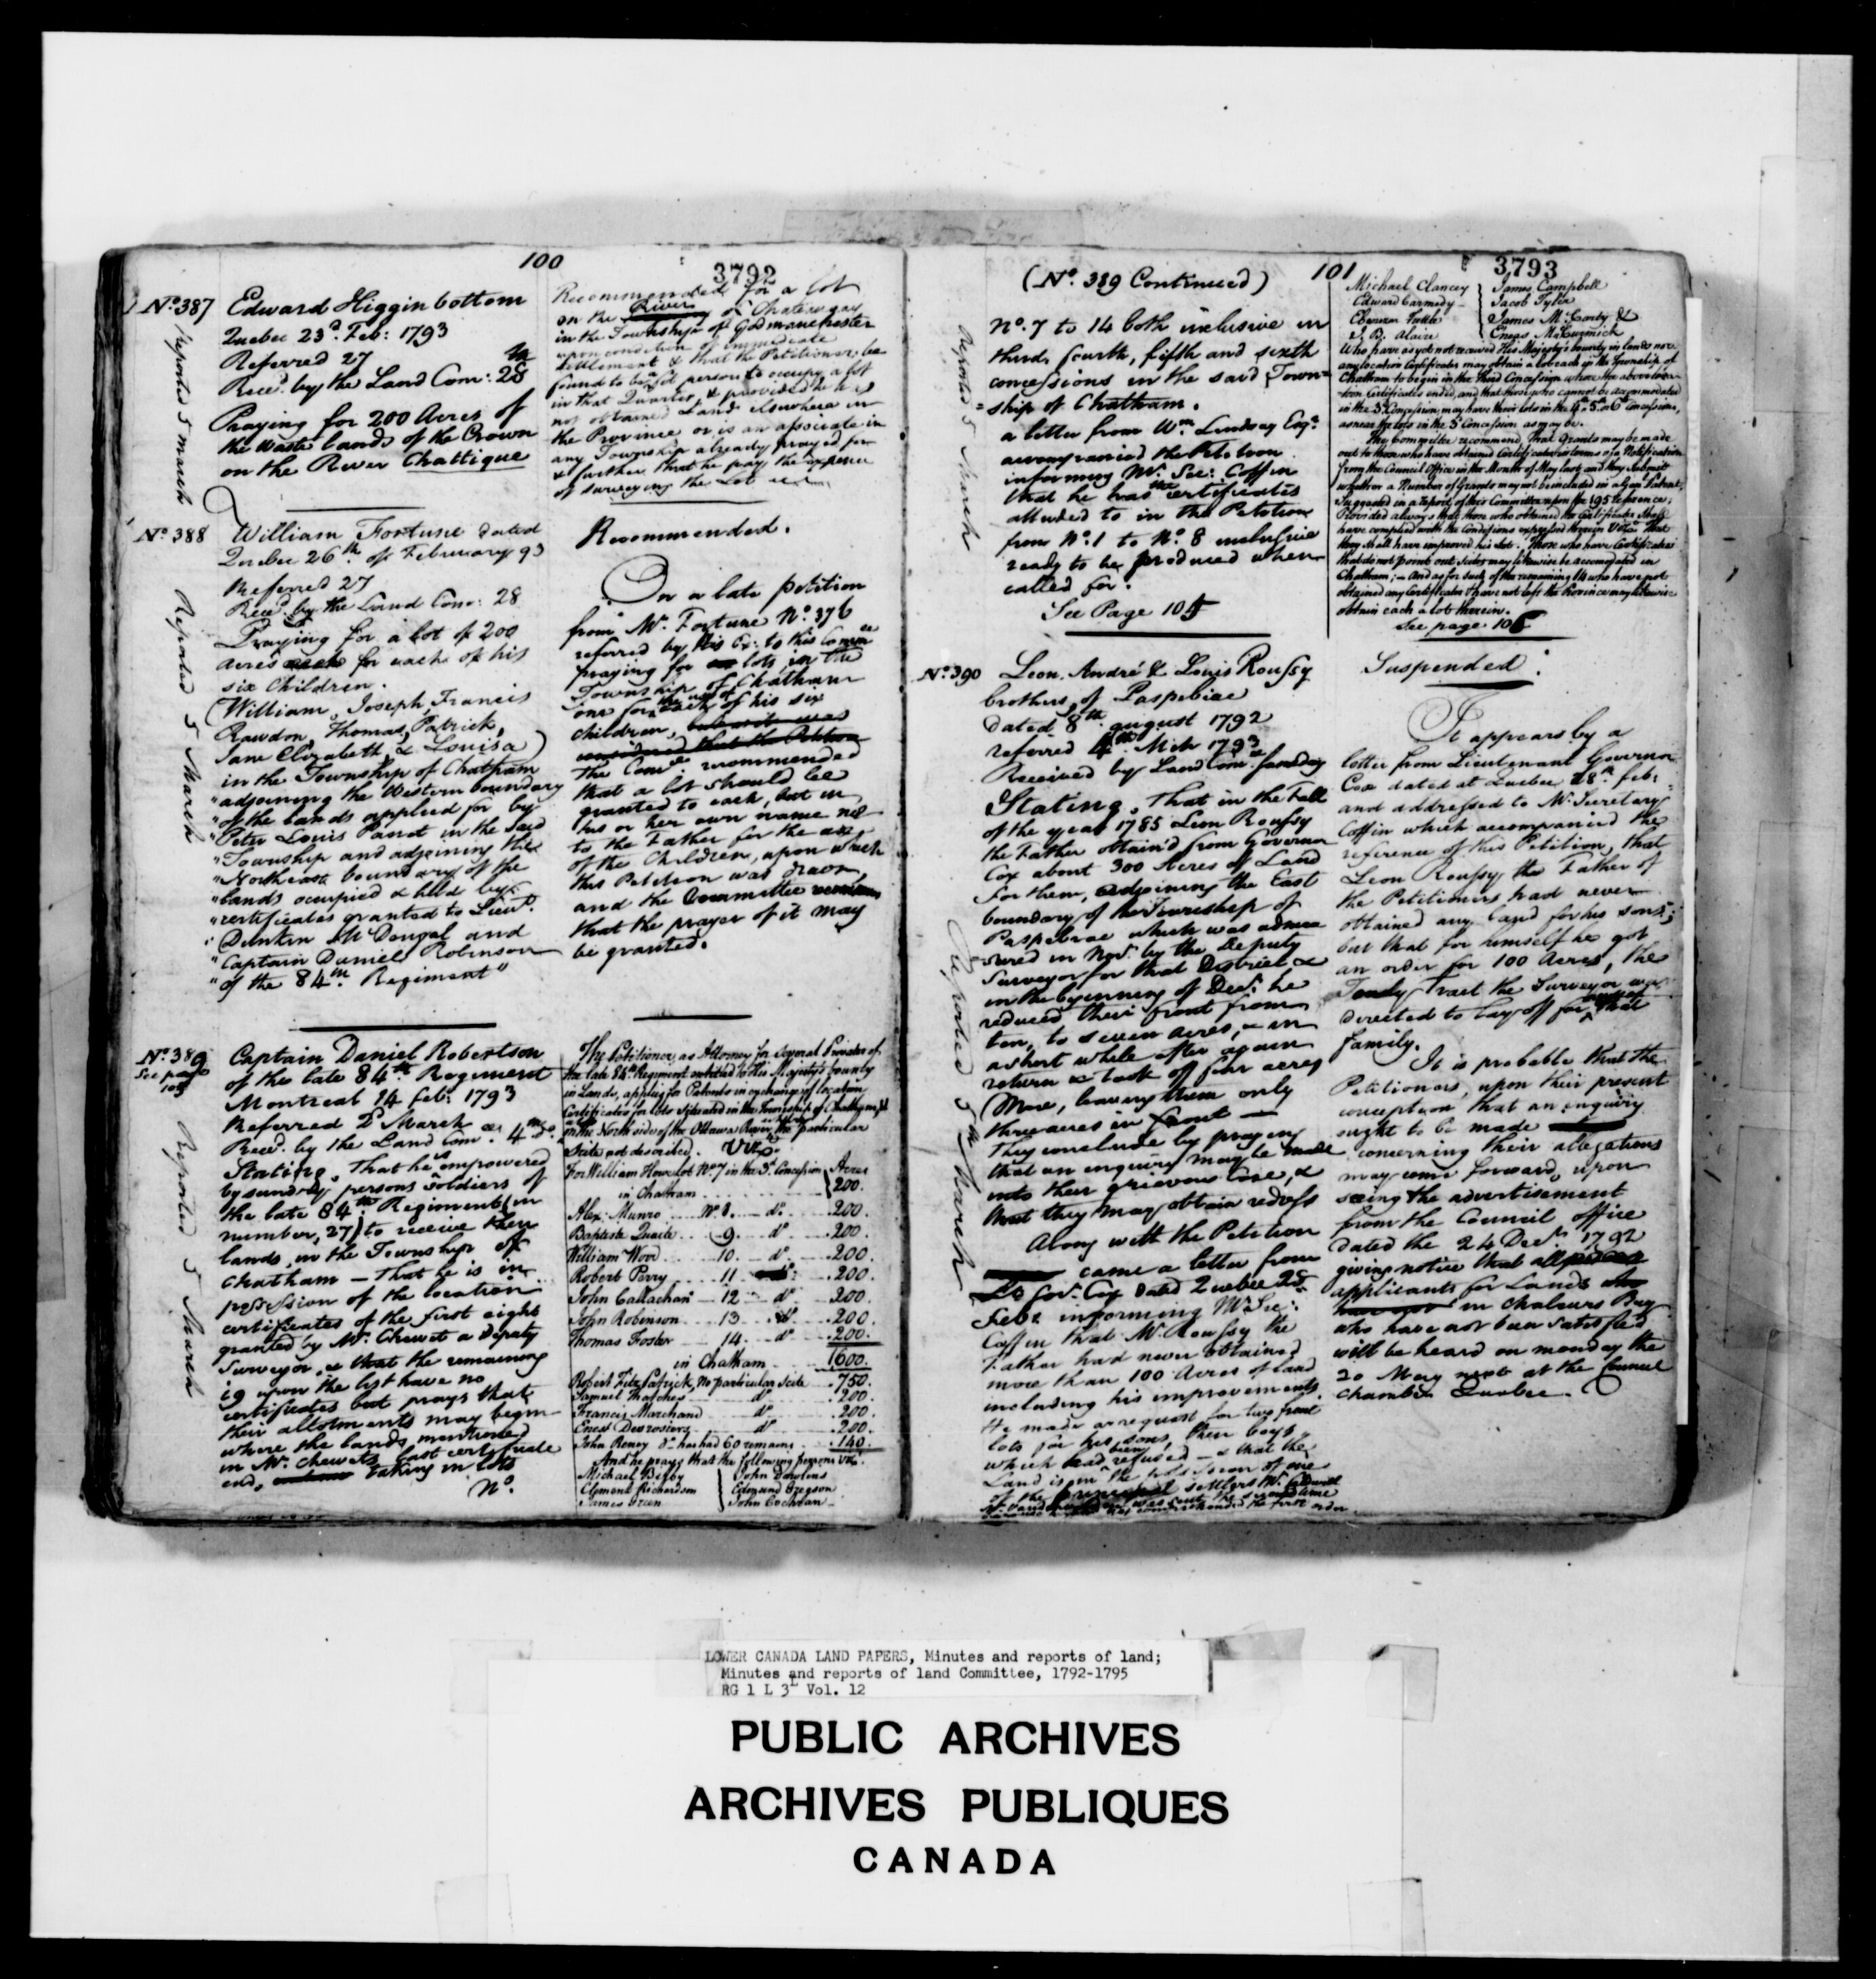 100
3792
Nº 387
Reported 5 March
Edward Higginbottom
Quebec 23d. Feb: 1793
Referred 27
Recd. by the Land Com: 28
Praying for 200 Acres of
the waste lands of the Crown
on the River Chattique
Recommended for a lot
on the River of Chateaugay
in the Township of Godmanchester
upon condition of immediate
Settlement & that the Petitioner be
found to be a fit person to occupy a lot
in that Quarter, & provided he has
not obtained Land elsewhere in
the Province or is an associate in
any Township already prayed for
& further that he pay the expence
of surveying the Lot
Nº 388
Reported 5 March
William Fortune dated
Quebec 26th. of February 93
Referred 27
Recd. by the Land Com: 28
Praying for a lot of 200
acres each for each of his
six Children.
(William, Joseph, Francis
Rawdon, Thomas, Patrick,
Jane Elizabeth & Louisa)
in the Township of Chatham
"adjoining the Western boundary
"of the lands applied for by
"Peter Louis Panet in the said
"Township and adjoining the
"North east boundary of the
"lands occupied & held by
"certificates granted to Lieut.
"Dunkin McDougal and
"Captain Daniel Robinson
"of the 84th. Regiment"
Recommended.
On a late petition
from Mr. Fortune Nº 376
referred by His Ex: to this Commee
praying for lots in the
Township of Chatham
one for the use of each of his six
children,
considered that the Petition
The Comee recommended
that a lot should be
granted to each, but in
his or her own name not
to the Father for the use
of the Children, upon which
this Petition was drawn,
and the Committee
that the prayer of it may
be granted.
Nº 389
See page
105
Reported 5 March
Captain Daniel Robertson
of the late 84th. Regiment
Montreal 14 Feb: 1793
Referred 2d March
Recd. by the Land Com: 4th do.
Stating, That he is empowered
by sundry persons soldiers of
the late 84th Regiment (in
number, 27) to receive their
lands, in the Township of
Chatham — That he is in
possession of the location
certificates of the first eight
granted by Mr. Chewett a deputy
Surveyor, & that the remaining
19 upon the list have no
certificates but prays that
their allotments may begin
where the lands mentioned
in Mr. Chewetts last certificate
end, taking in lots
Nº.
The Petitioner, as Attorney for Several Privates of
the late 84th Regiment entitled to His Majesty's bounty
in Lands, applies for Patents in exchange of location
Certificates for lots situated in the Township of Chatham
on the North side of the Ottawa River, the particular
Scite not described. Vizt.
For William Howe lot Nº 7 in the 3d. Concession Acres
in Chatham 200.
Alex: Munro Nº 8. do. 200.
Baptiste Quaite 9. do 200.
William Wood 10. do. 200.
Robert Perry 11 do. 200.
John Callachan 12 do. 200.
John Robinson 13. do. 200.
Thomas Foster 14. do 200.
in Chatham 1600.
Robert Fitz Patrick, No particular scite 750.
Samuel Thatcher do. 200.
Francis Marchand do 200.
Enest Desrosiers do 200.
John Reney do has had 60 remains 140.
And he prays that the following persons Vizt.
Michael Bigby } John Dawlens
Clement Richardson } Edmund Gregson
James Green } John Cochran
101
3793
(Nº. 389 Continued)
Reported 5 March
Nº. 7 to 14 both inclusive in
third, fourth, fifth and sixth
concessions in the said Town=
=ship of Chatham.
a letter from Wm. Lindsay Esqr.
accompanied the Petition
informing Mr. Sec: Coffin
that he has the certificates
alluded to in the Petition
from Nº. 1 to Nº. 8 inclusive
ready to be produced when
called for.
See Page 105
Michael Clancey } James Campbell
Edward Carmedy } Jacob Tyler
Ebenezer Tuttle } James McCarty &
J. B. Alaire } Eneas McCurmick
Who have as yet not received His Majesty's bounty in lands nor
any location Certificates may obtain a lot each in the Township of
Chatham to begin in the Third Concession where the above loca-
tion Certificates ended, and that those who cannot be accommodated
in the 3d. Concession, may have their lots in the 4th 5th or 6th Concessions,
as near the lots in the 3d Concession as may be.
The Committee recommend, That Grants may be made
out to those who have obtained Certificates in terms of a Notification
from the Council Office in the Month of May last, and they Submit
whether a Number of Grants may not be included in a Gen: Patent,
Suggested in a report of this Committee upon the 195 reference;
Provided always that those who obtained the Certificates shall
have complied with the Conditions expressed therein Vizt. That
they shall have improved his lot. Those who have Certificates
that do not point out Scites may likewise be accomodated in
Chatham; — And as for such of the remaining 14 who have not
obtained any Certificates & have not left the Province may likewise
obtain each a lot therein.
See page 105
Nº. 390
Reported 5th March
Leon, André & Louis Roussy
brothers, of Paspebiac
dated 8th. august 1792
referred 4th. Mch 1793
Received by Land Com: same day
Stating, That in the Fall
of the year 1785 Leon Roussy
the Father obtain'd from Governor
Cox about 300 Acres of Land
for them, adjoining the East
boundary of the Township of
Paspebiac which was admea
sured in Novr. by the Deputy
Surveyor for that District &
in the beginning of Decr. he
reduced their front from
ten, to seven acres, & in
a short while after again
return & took off four acres
More, leaving them only
three acres in front —
They conclude by praying
that an enquiry may be made
into their grievous Case, &
that they may obtain redress
Along with the Petition
came a letter from
Lt Govr. Cox dated Quebec 28
Feb: informing Mr. Sec:
Coffin that Mr. Roussy the
Father had never obtained
more than 100 Acres of land
including his improvements
He made a request for two front
lots for his sons, then boys,
which had been refused — & that the
Land is in the possession of one
of the principal settlers Mr.
Suspended.
It appears by a
letter from Lieutenant Governor
Cox dated at Quebec 28th. feb:
and addressed to Mr. Secretary
Coffin which accompanied the
reference of this Petition, that
Leon Roussy, the Father of
the Petitioners had never
obtained any land for his sons;
but that for himself he got
an order for 100 Acres, the
Tract the Surveyor was
directed to lay off for that
family.
It is probable that the
Petitioners, upon their present
conception that an enquiry
ought to be made
concerning their allegations
may come forward, upon
seeing the advertisement
from the Council office
dated the 24 Decr. 1792
giving notice that all
applicants for Lands
in Chaleurs Bay
who have not been satisfied
will be heard on monday the
20 May next at the Council
Chamber Quebec.
LOWER CANADA LAND PAPERS, Minutes and reports of land;
Minutes and reports of land Committee, 1792-1795
RG 1 L 3L Vol. 12
PUBLIC ARCHIVES
ARCHIVES PUBLIQUES
CANADA